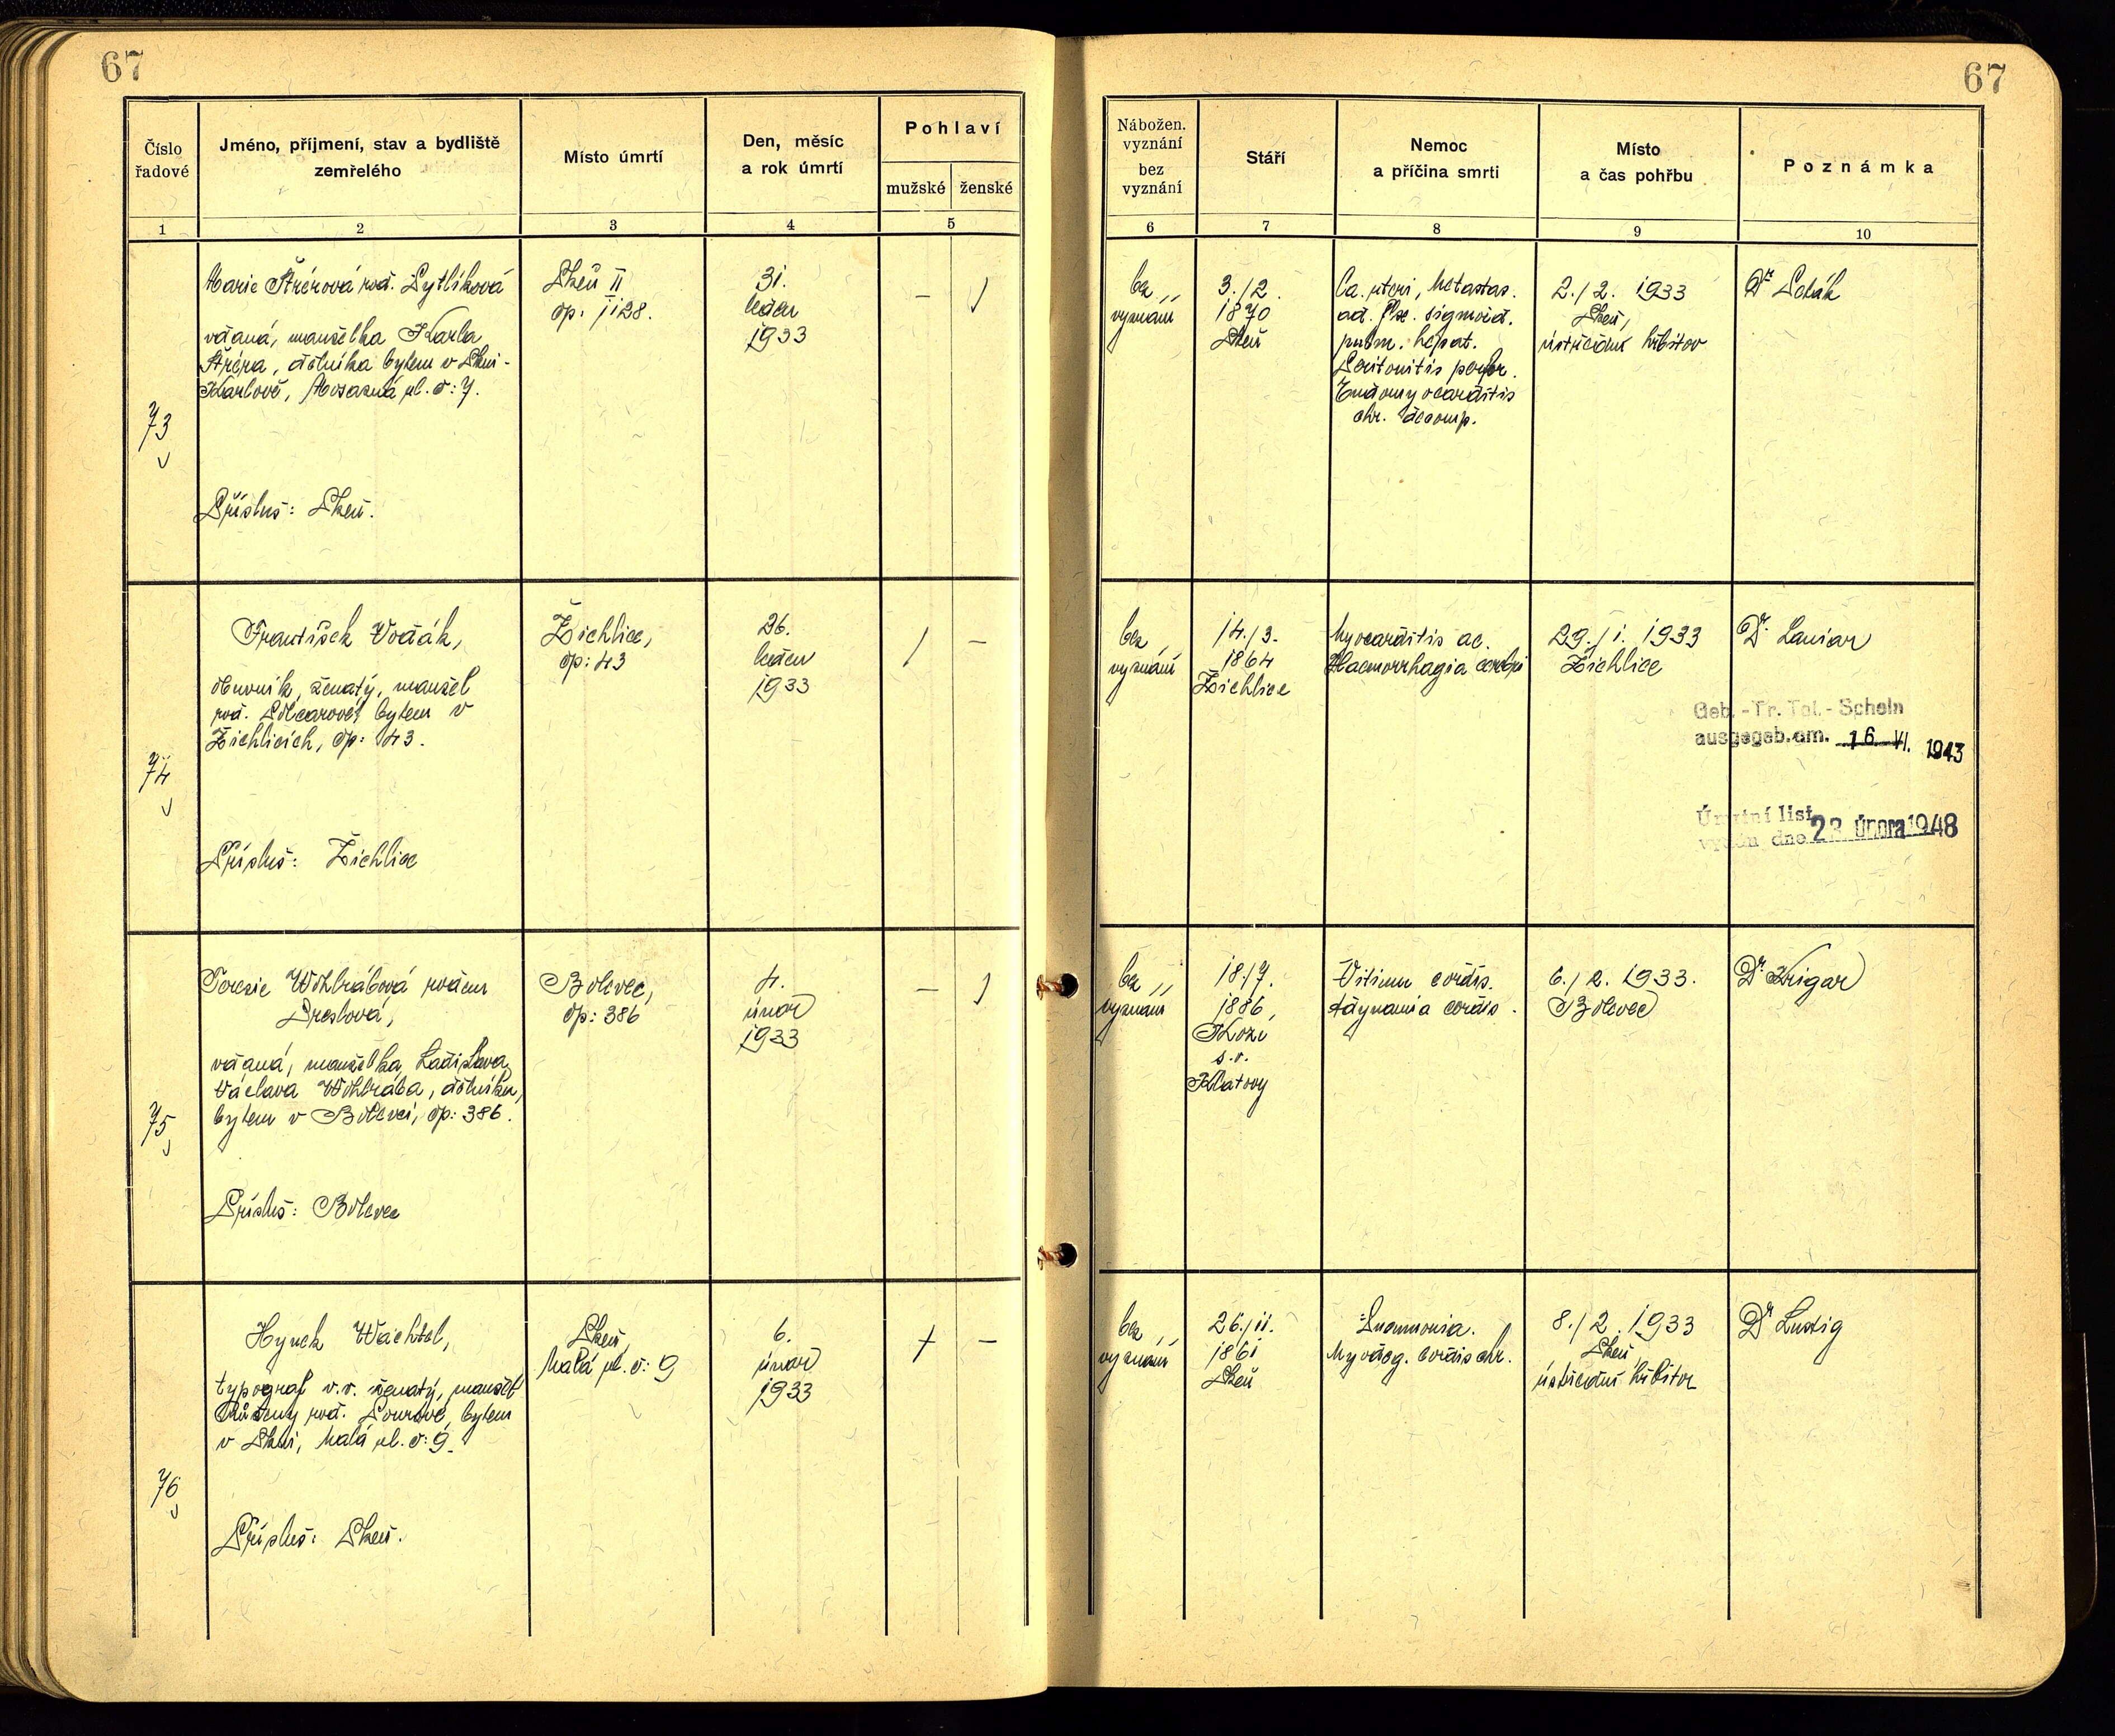 67
67
Číslo řadové
Jméno, příjmení, stav a bydliště zemřelého
Místo úmrtí
Den, měsíc a rok úmrtí
Pohlaví
mužské
ženské
Nábožen. vyznání bez vyznání
Stáří
Nemoc a příčina smrti
Místo a čas pohřbu
Poznámka
1
2
3
4
5
6
7
8
9
10
73
Marie Štrérová roz. Pytlíková
vdaná, manželka Karla
dělníka bytem v Plzni-
Karlově, Mosazná ul. č: 7.
Přísluš: Plzeň.
Plzeň II
čp: 1128.
31.
leden
1933
–
/
bez
vyznání
3./2.
1870
Plzeň
Ca. uteri, Metastas.
ad. flex. sigmoid.
pulm. hepat.
Peritonitis perfor.
Endomyocarditis
chr. decomp.
2./2. 1933
Plzeň,
ústřední hřbitov
Dr Polák
74
František Vodák,
obuvník, ženatý, manžel
roz. bytem v
Žichlicích, čp: 43.
Přísluš: Žichlice
Žichlice,
čp: 43
26.
leden
1933
/
–
bez
vyznání
14./3.
1864
Žichlice
Myocarditis ac.
Haemorrhagia cerebri
29./1. 1933
Žichlice
Dr. Laniar
Geb.-Tr. Tot.-Schein
ausgegeb. am. 16 VI. 1943
Úmrtní list
vydán dne 23 února 1948
75
Terezie Wohlrábová rozená
Preslová,
vdaná, manželka Ladislava
Václava Wohlrába, dělníka,
bytem v Bolevci, čp: 386.
Přísluš: Bolevec
Bolevec,
čp: 386
4.
únor
1933
–
/
bez
vyznání
18./7.
1886,
s.o.
Klatovy
Vitium cordis.
Adynamia cordis.
6./2. 1933.
Bolevec
Dr. Krigar
76
Hynek Wachtel,
typograf v.v. ženatý, manžel
Růženy roz. bytem
v Plzni, Malá ul. č: 9.
Přísluš: Plzeň.
Plzeň,
Malá ul. č: 9
6.
únor
1933
/
–
bez
vyznání
26./11.
1861
Plzeň
Pneumonia.
Myodeg. cordis chr.
8./2. 1933
Plzeň
ústřední hřbitov
Dr Lustig